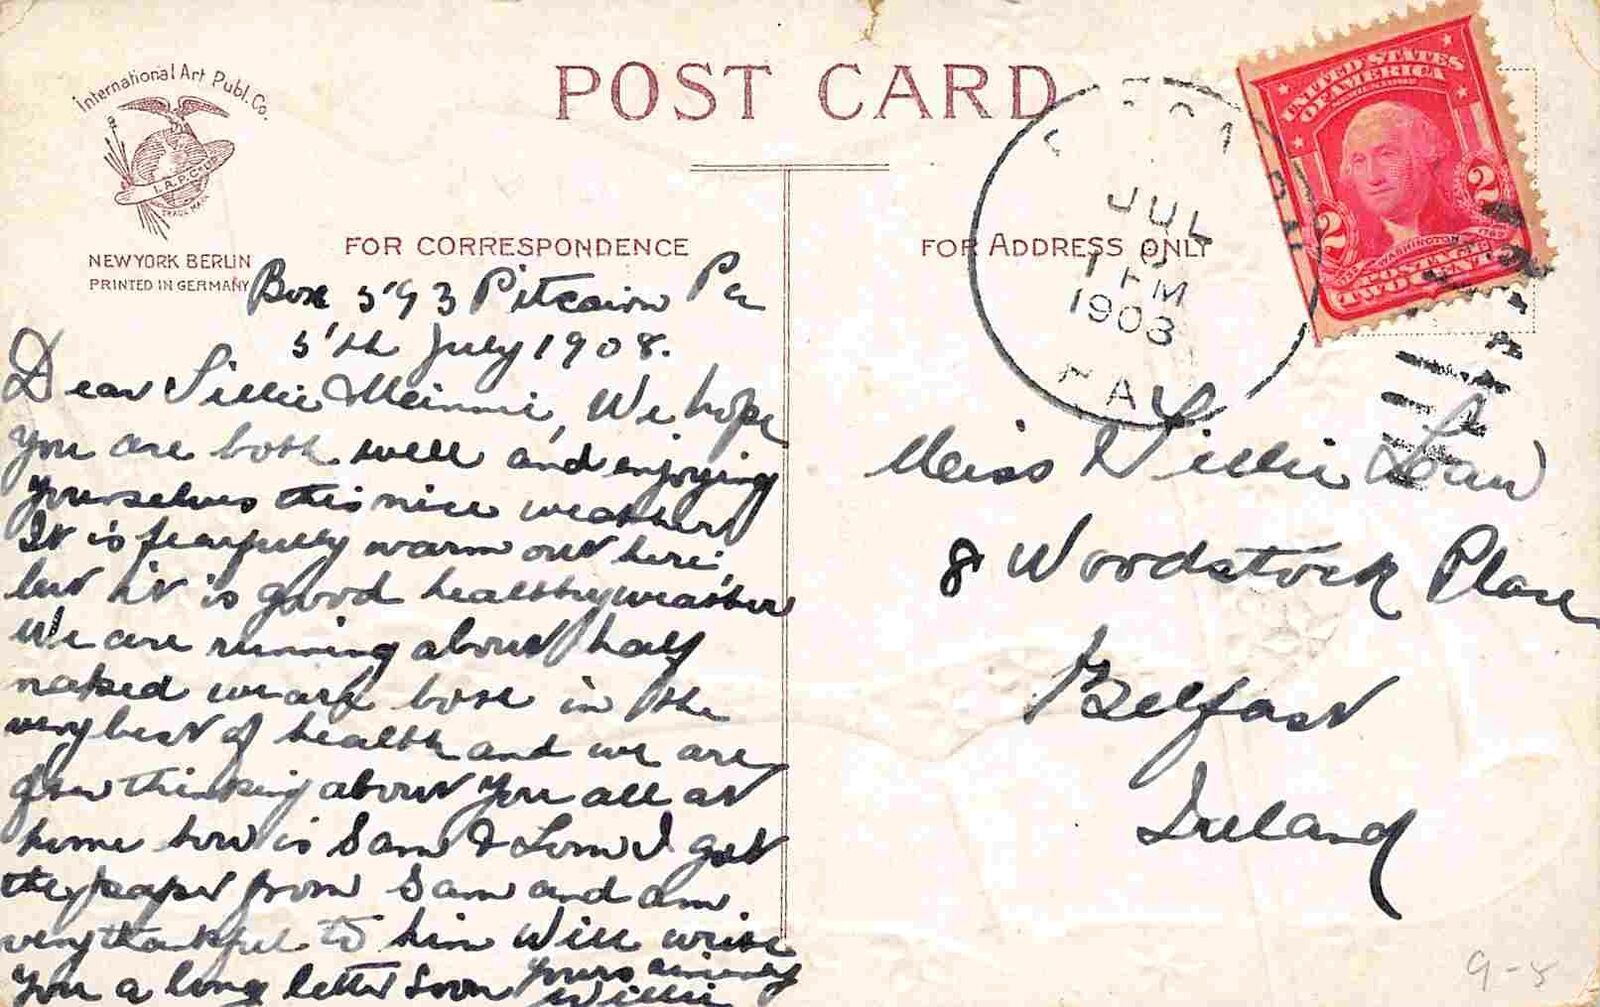 International Art Publ. Co.
I.A.P.C.
TRADE MARK
NEW YORK BERLIN
PRINTED IN GERMANY
POST CARD
FOR CORRESPONDENCE
FOR ADDRESS ONLY
Box 593 Pitcairn Pa
5th July 1908.
Dear Lillie Minnie, We hope
you are both well and enjoying
yourselves this nice weather
It is fearfully warm out here,
but it is good healthy weather
We are running about half
naked we are both in the
very best of health and we are
often thinking about you all at
home how is Sam & Tom I got
the paper from Sam and am
very thankful to him Will write
you a long letter soon yours sincerely
Willie
JUL
1 PM
1908
UNITED STATES
OF AMERICA
WASHINGTON
2 2
POSTAGE
TWO CENTS
Miss Lillie
8 Woodstock Place
Belfast
Ireland
9-8